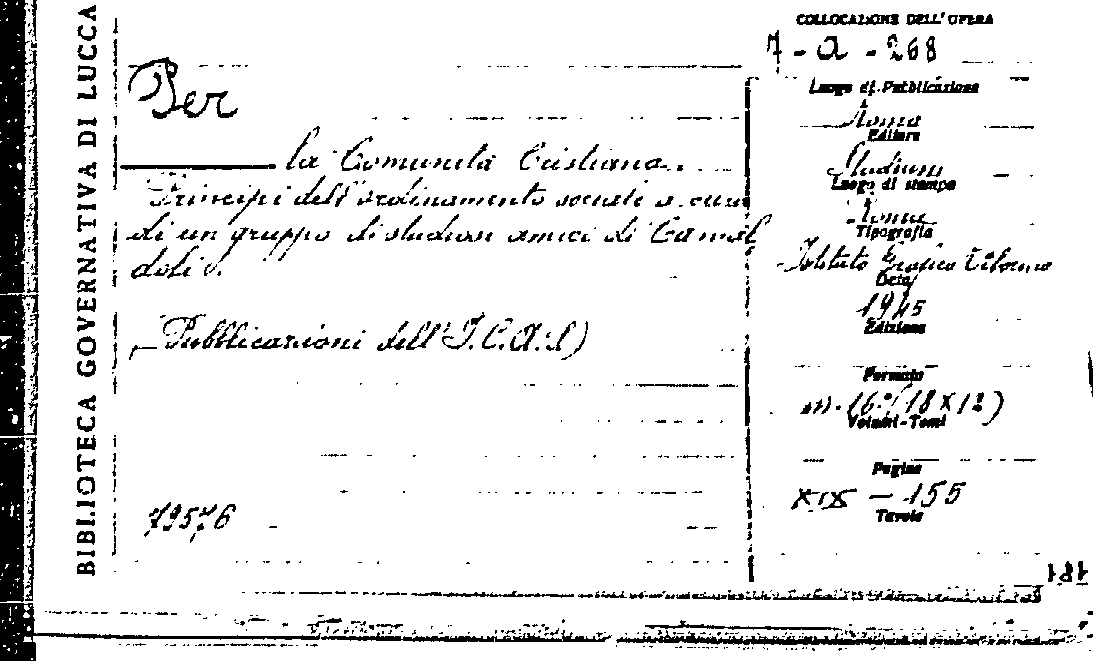 BIBLIOTECA GOVERNATIVA DI LUCCA
Per
la Comunità Cristiana.
Principi dell'ordinamento sociale a cura
di un gruppo di studiosi amici di Camal
doli
(Pubblicazioni dell'I.C.A.S)
79576
COLLOCAZIONE DELL'OPERA
7 - A - 268
Luogo di Pubblicazione
Roma
Editore
Studium
Luogo di stampa
Roma
Tipografia
Istituto Grafico Tiberino
Data
1945
Edizione
Formato
in-16° (18 x 12)
Volumi - Tomi
Pagine
XIX - 155
Tavole